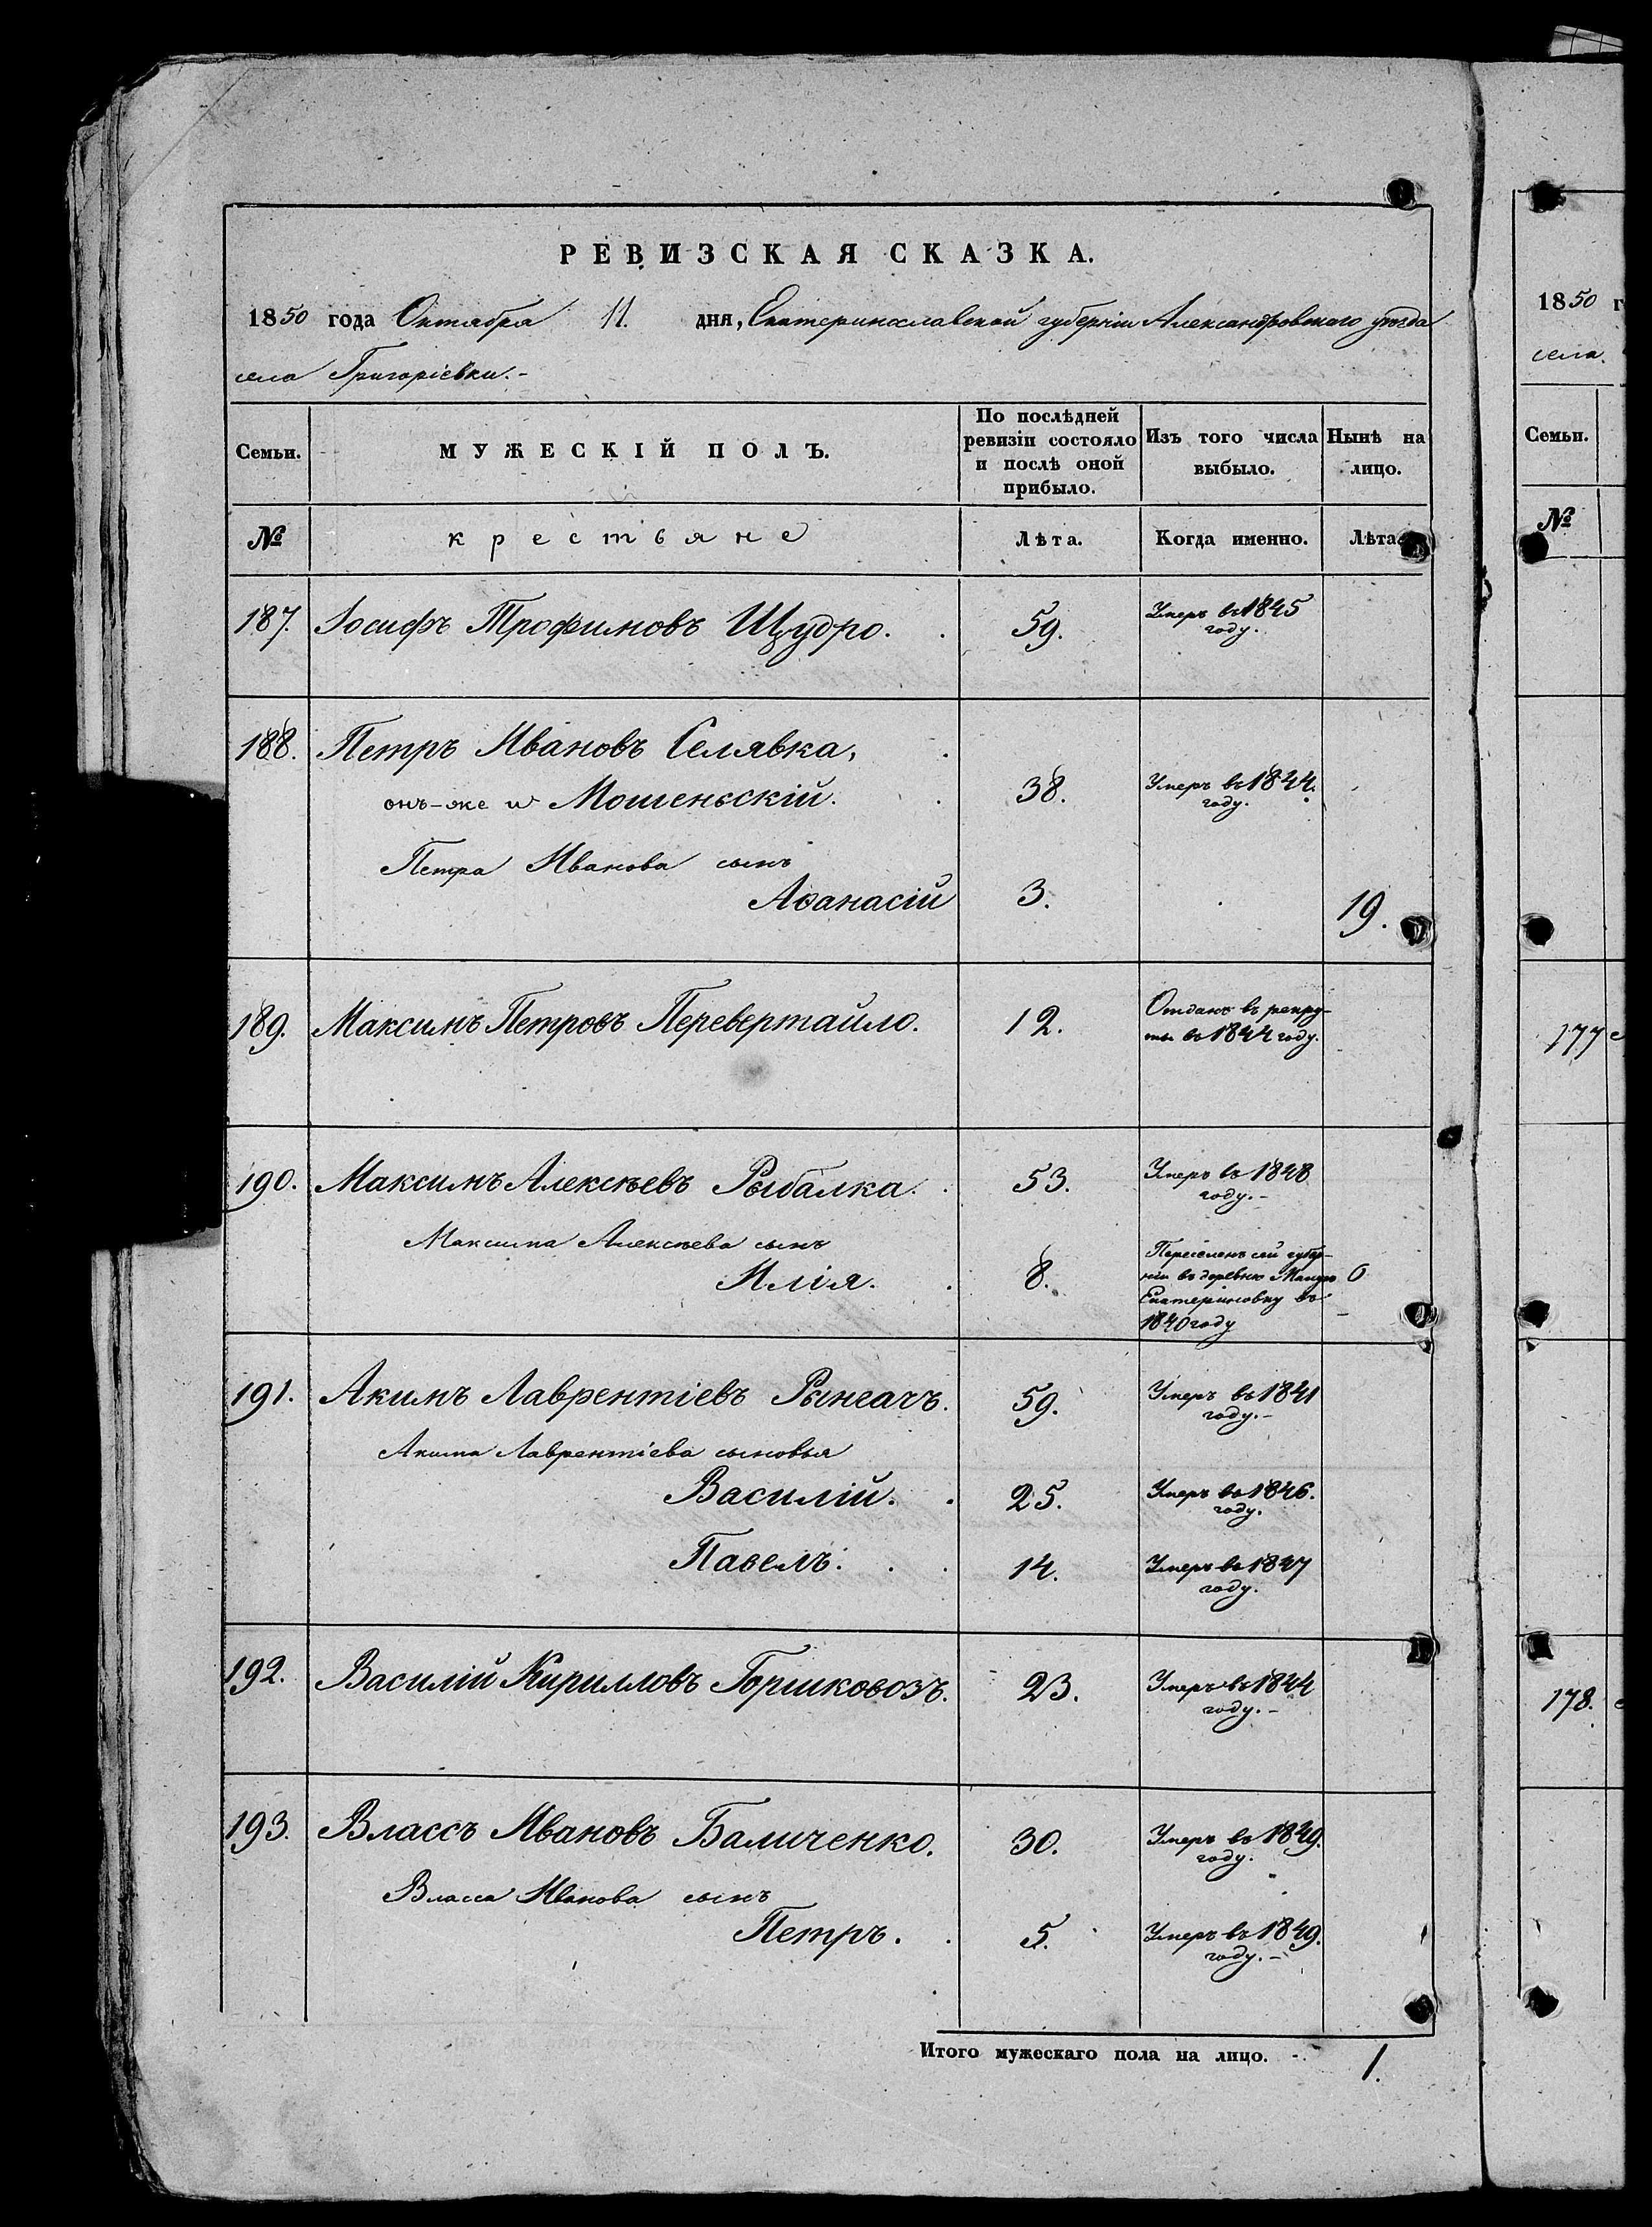 РЕВИЗСКАЯ СКАЗКА.
1850 года Октября 11. дня, Екатеринославской губерніи Александровскаго уѣзда
села Григоріевки.-
Семьи. МУЖЕСКІЙ ПОЛЪ. По послѣдней ревизіи состояло и послѣ оной прибыло. Изъ того числа выбыло. Нынѣ на лицо.
№ крестьяне Лѣта. Когда именно. Лѣта.
187. Іосифъ Трофимовъ Щудро. 59. Умеръ въ 1845
году.
188. Петръ Ивановъ Селявка,
онъ-же и Мошенскій. 38. Умеръ въ 1844.
году.
Петра Иванова сынъ
Аѳанасій 3. 19.
189. Максимъ Петровъ Перевертайло. 12. Отданъ въ рекру-
ты въ 1844 году.
190. Максимъ Алексѣевъ Рыбалка. 53. Умеръ въ 1848
году.-
Максима Алексѣева сынъ
Илія. 8. Переселенъ сей губер-
ніи въ деревню
Екатериновку въ
1840 году
191. Акимъ Лаврентіевъ 59. Умеръ въ 1841
году.-
Акима Лаврентіева сыновья
Василій. 25. Умеръ въ 1846.
году.
Павелъ. 14. Умеръ въ 1847
году.
192. Василій Кирилловъ Горшковозъ. 23. Умеръ въ 1844
году.-
193. Влассъ Ивановъ Баличенко. 30. Умеръ въ 1849.
году.
Власса Иванова сынъ
Петръ. 5. Умеръ въ 1849.
году.-
Итого мужескаго пола на лицо. 1.
1850 г
села
Семьи.
№
177
178.